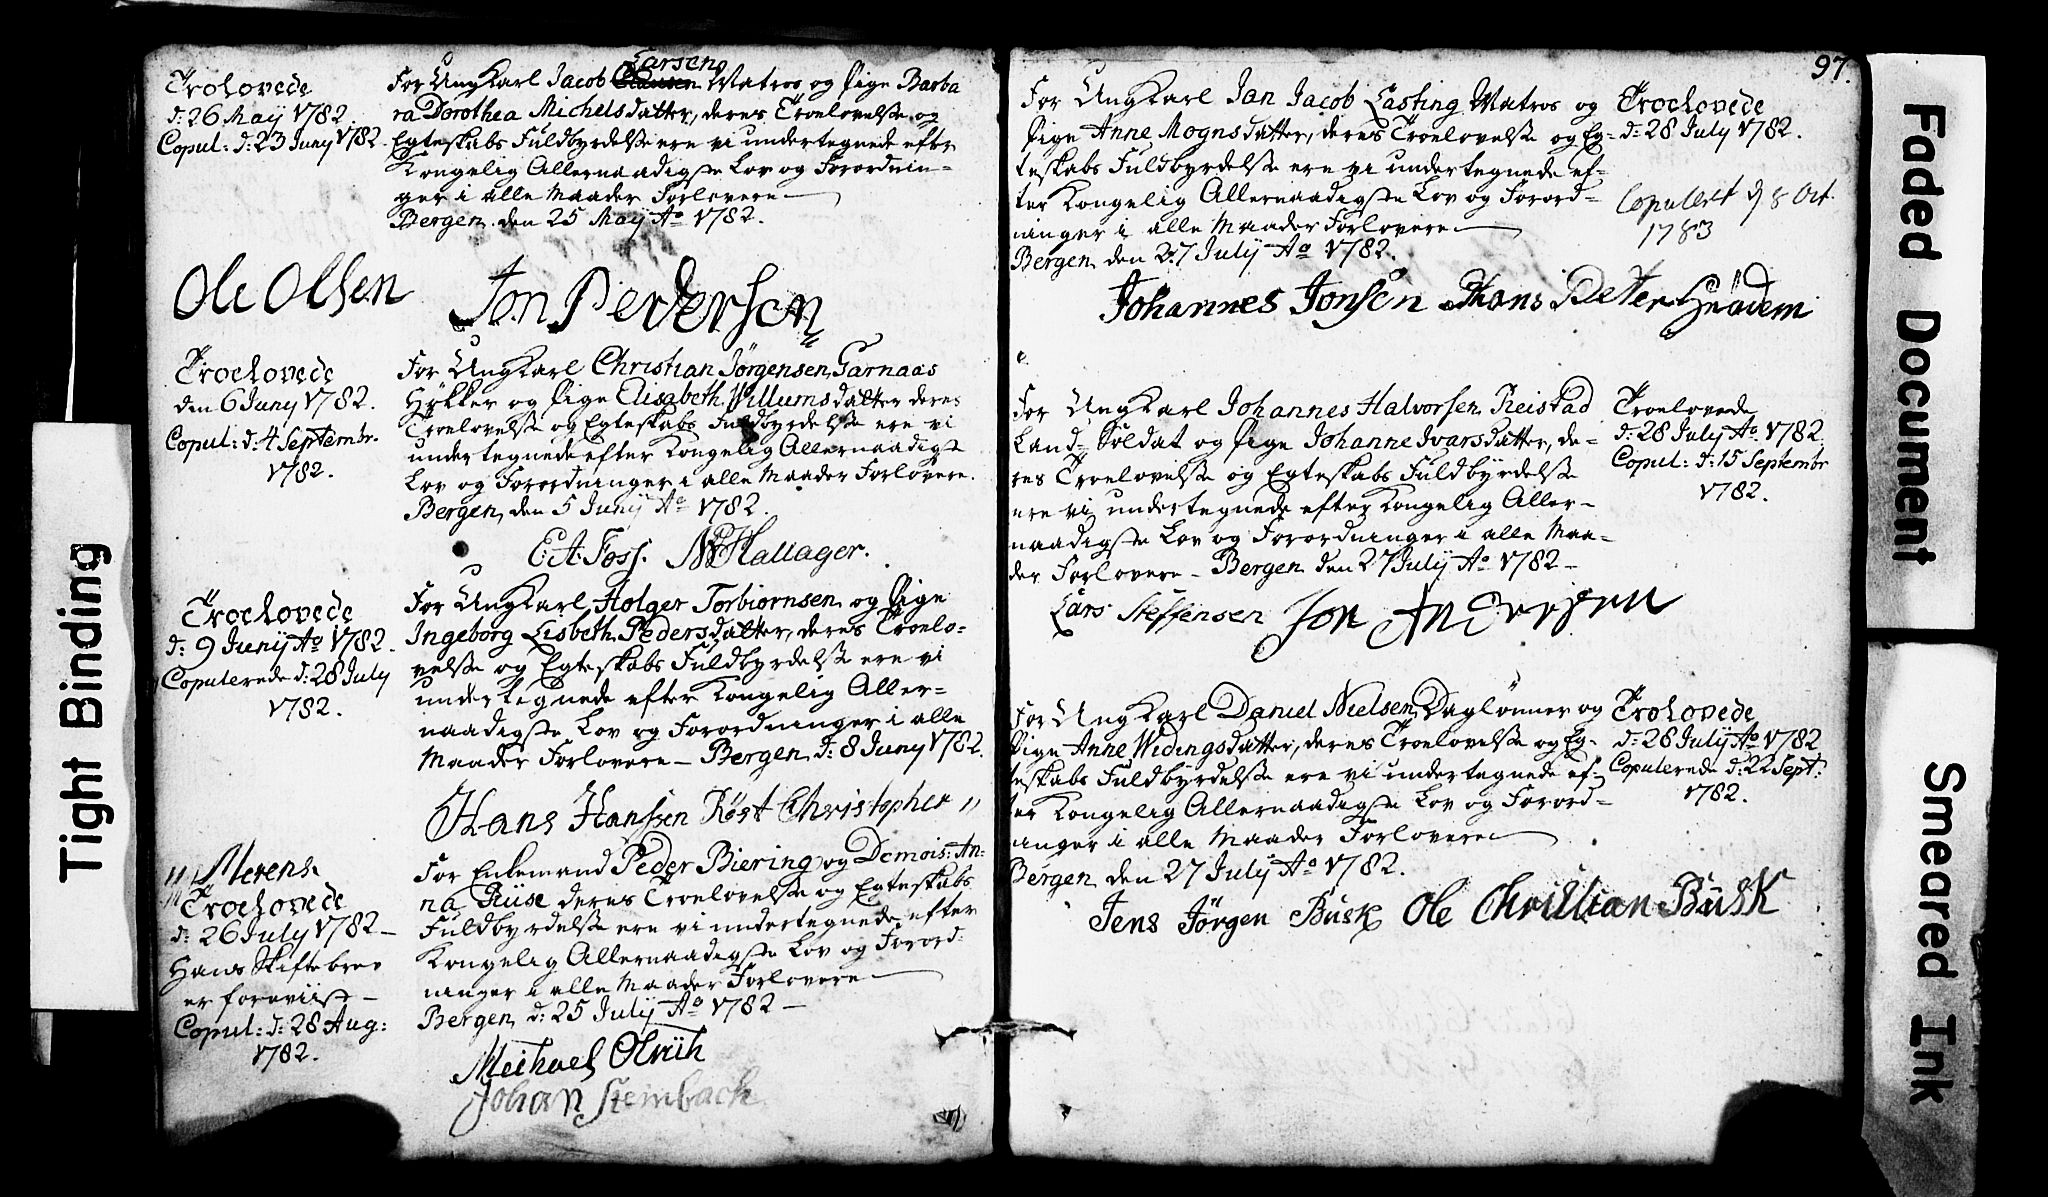 Trolovede
d: 26 Maÿ 1782.
Copul: d: 23 Junÿ 1782.
Larsen
For UngKarl Jacob Clausen Matros og Pige Barba
ra Dorothea Michelsdatter, deres Troelovelse og
Egteskabs Fuldbyrdelse ere vi undertegnede efter
Kongelig Allernaadigste Lov og Forordnin-
ger i alle Maader Forlovere
Bergen den 25 Maÿ Ao 1782.
Ole Olsen
Jon Pedersen
Troelovede
den 6 Junÿ 1782.
Copul: d: 4 Septembr.
1782.
For UngKarl Christian Jørgensen Garnaas
Høkker og Pige Elisabeth Willumsdatter deres
Troelovelse og Egteskabs Fuldbyrdelse ere vi
undertegnede efter Kongelig Allernaadigste
Lov og Forordninger i alle Maader Forlovere.
Bergen, den 5 Junÿ Ao 1782.
E. A. Foss. Hallager.
Troelovede
d: 9 Junÿ Ao 1782.
Copulerede d: 28 July
1782.
For UngKarl Holger Torbiørnsen og Pige
Ingeborg Lisbeth Pedersdatter, deres Troelo-
velse og Egteskabs Fuldbyrdelse ere vi
undertegnede efter Kongelig Aller-
naadigste Lov og Forordninger i alle
Maader Forlovere - Bergen d: 8 Junÿ 1782.
Hans Hanssen Røst Christopher //
// Merens
Troelovede
d: 26 July 1782 -
Hans Skiftebrev
er foreviist -
Copul: d: 28 Aug:
1782.
For Enkemand Peder Biering og Demois: An-
na Riise deres Troelovelse og Egteskabs
Fuldbyrdelse ere vi undertegnede efter
Kongelig Allernaadigste Lov og Forord-
ninger i alle Maader Forlovere
Bergen d: 25 Julÿ Ao 1782 -
Michael
Johan Steinbach
97.
For UngKarl Jan Jacob Lasting Matros og
Pige Anne Mognsdatter, deres Troelovelse og Eg-
teskabs Fuldbyrdelse ere vi undertegnede ef-
ter Kongelig Allernaadigste Lov og Forord-
ninger i alle Maader Forlovere
Bergen den 27 Julÿ Ao 1782.
Troelovede
d: 28 July 1782.
Copulert d 8 Oct.
1783
Johannes Jonsen Hans Peter
For UngKarl Johannes Halvorsen Reistad
Land-Soldat og Pige Johanne Ivarsdatter, de-
res Troelovelse og Egteskabs Fuldbyrdelse
ere vi undertegnede efter Kongelig Aller-
naadigste Lov og Forordninger i alle Maa-
der Forlovere - Bergen den 27 Julÿ Ao 1782 -
Troelovede
d: 28 Julÿ Ao 1782.
Copul: d: 15 Septembr
1782.
Lars Steffensen Jon Andersen
For UngKarl Daniel Nielsen, Daglønner og
Pige Anne Widingsdatter, deres Troelovelse og Eg-
teskabs Fuldbyrdelse ere vi undertegnede ef-
ter Kongelig Allernaadigste Lov og Forord-
ninger i alle Maader Forlovere
Bergen den 27 Julÿ Ao 1782.
Trolovede
d: 28 Julÿ Ao 1782
Copulerede d: 22 Sept:
1782.
Jens Jörgen Busk Ole Christian Busk
Tight Binding
Faded Document
Smeared Ink